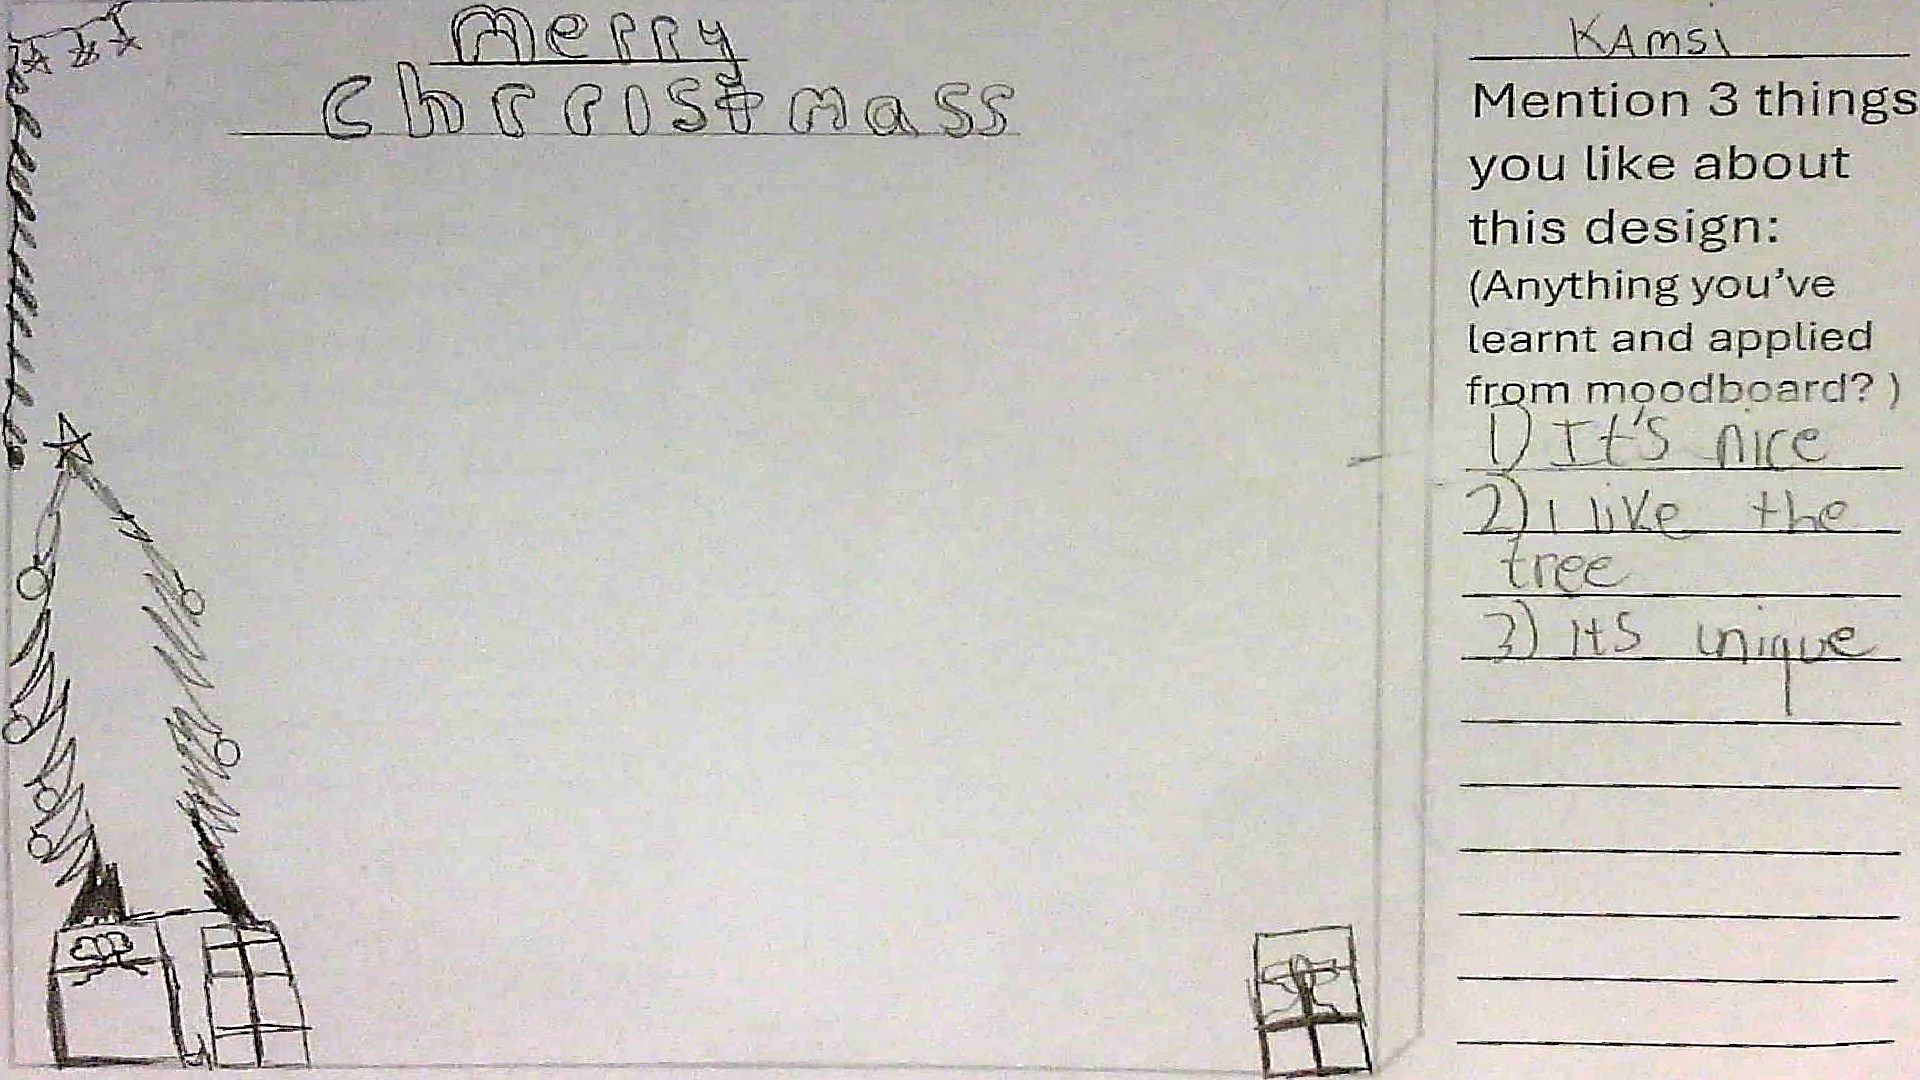 Merry
Chrristmass
KAmsi
Mention 3 things
you like about
this design:
(Anything you've
learnt and applied
from moodboard? )
1) It's nice
2) I like the
tree
3) its unique